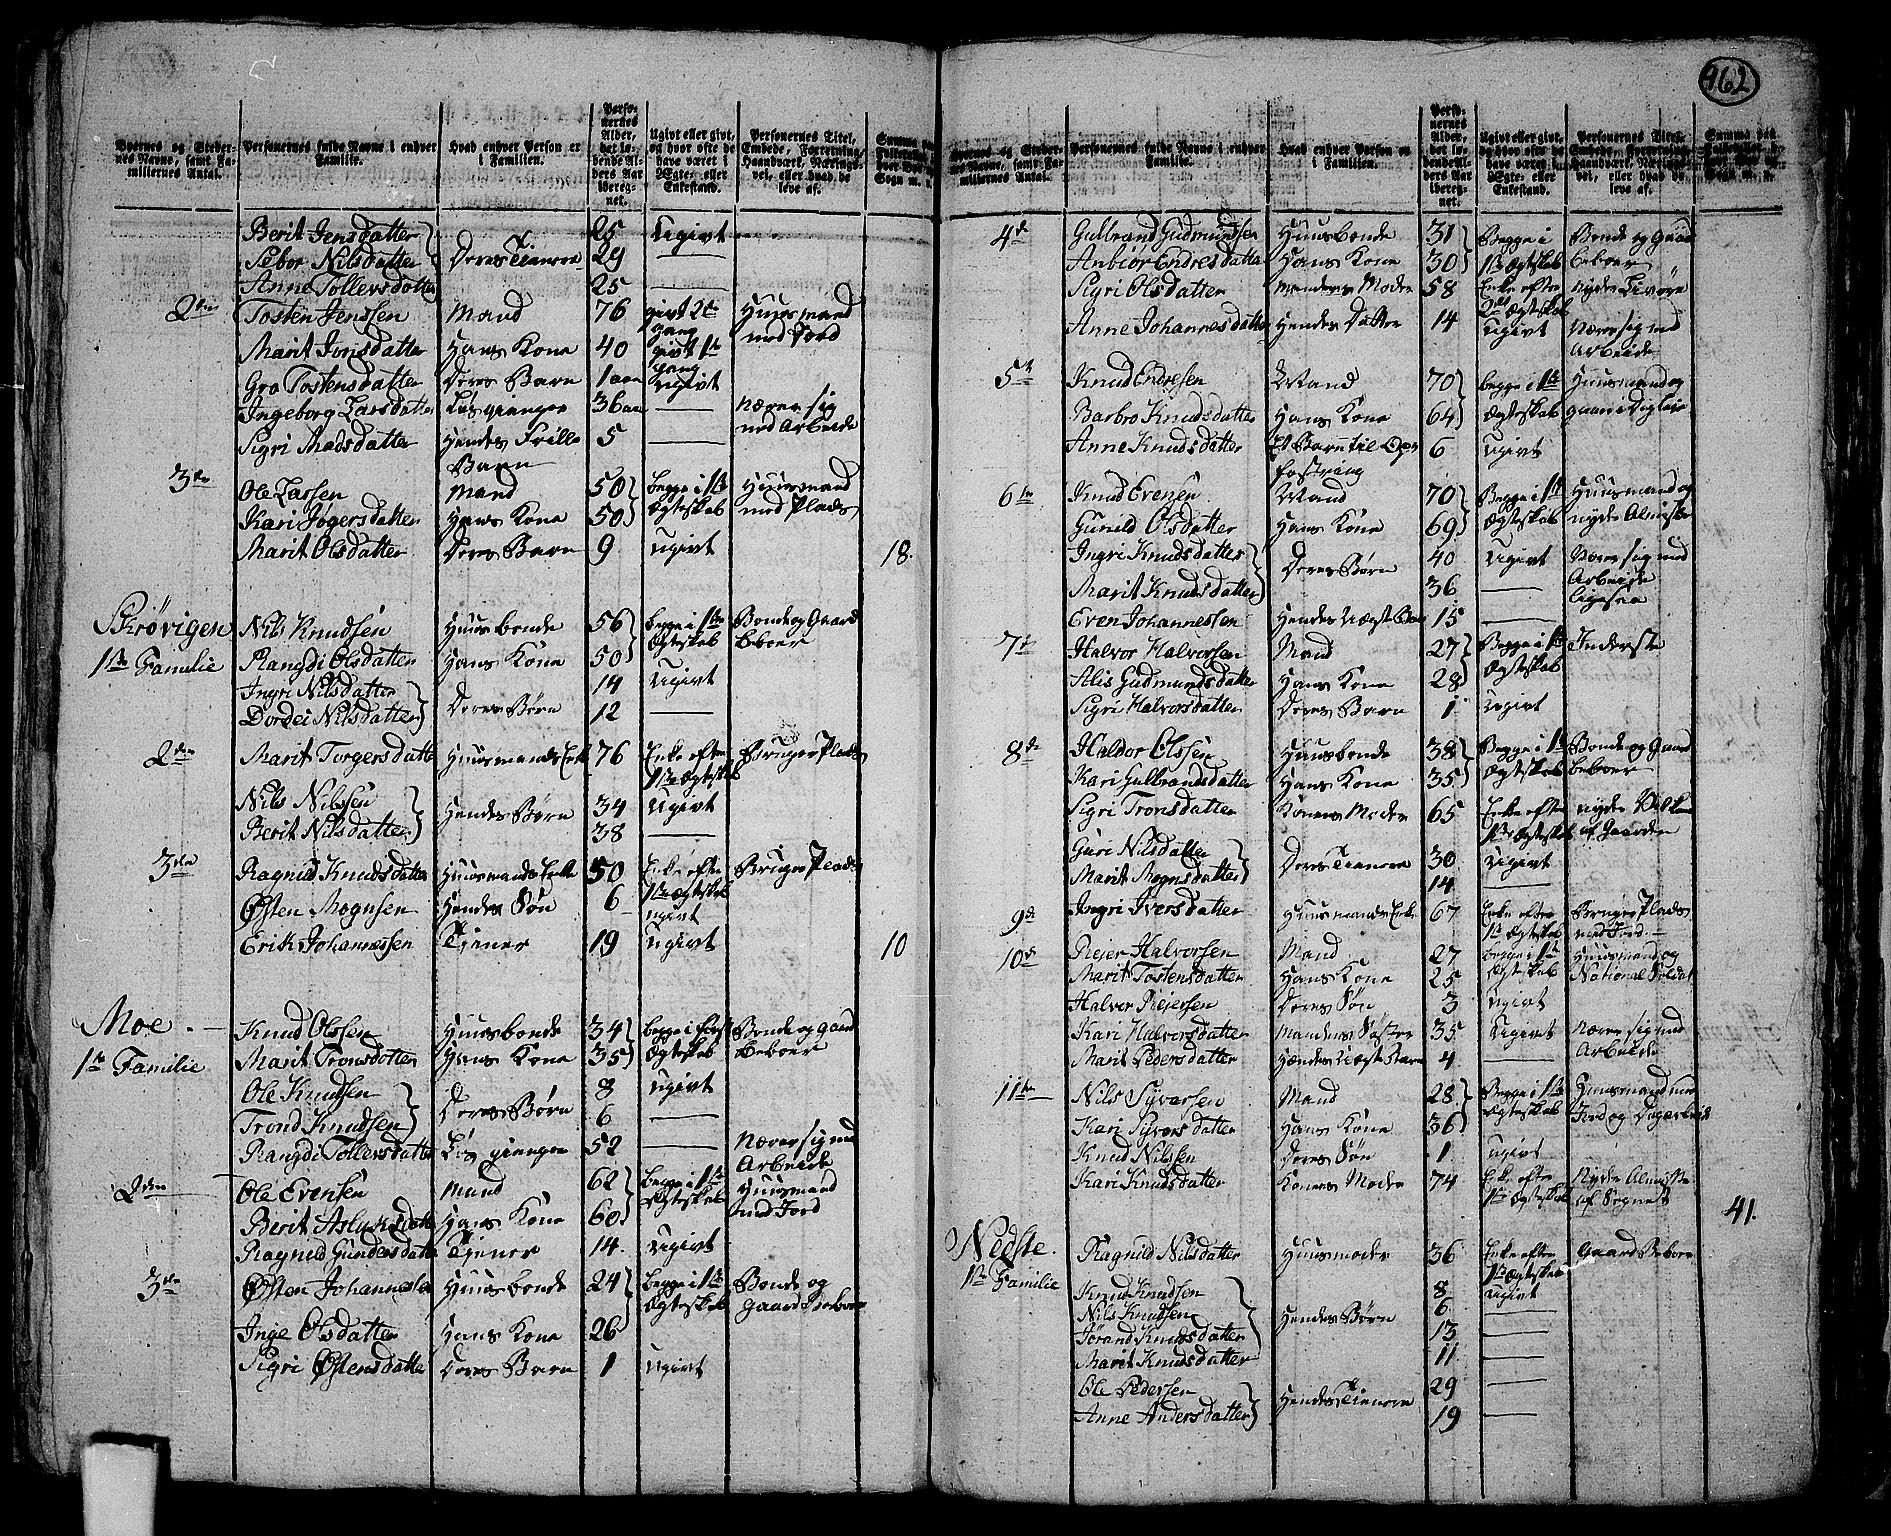 462
Byernes og Steder-
nes Navne, samt Fa-
miliernes Antal.
Personernes fulde Navne i enhver
Familie.
Hvad enhver Person er
i Familien.
Perso-
nernes
Alder,
det lø-
bende Al-
ders Aar
ibereg-
net.
Ugivt eller givt,
og hvor ofte de
have været i
Ægte- eller
Enkestand.
Personernes Titel,
Embede, Forretning,
Haandværk, Nærings-
vei, eller hvad de
leve af.
Berit Jensdatter 25 Ugivt
Nilsdatter Deres Tienere 29
Anne Tollevsdotter 25
2den Tosten Jenssen Mand 76 givt 2de gang Huusmand med Jord
Marit Jonsdatter Hans Kone 40 givt 1te gang
Gro Tostensdatter Deres Barn 1 aar ugivt
Ingeborg Larsdatter Løsgienger 36 aar Nærer sig med Arbeide
Sigri Madsdatter Hendes Frille Barn 5
3de Ole Larsen Mand 50 begge i 1te Ægteskab Huusmand med Plads
Kari Jøgersdatter Hans Kone 50
Marit Olsdatter Deres Barn 9 ugivt 18.
Skrøvigen
1te Familie
Nils Knudsen Huusbonde 56 begge i 1te Ægteskab Bonde og Gaard Beboer
Rangdi Olsdatter Hans Kone 50
Ingri Nilsdatter 14 ugivt
Dordei Nilsdatter Deres Børn 12
2den Marit Torgersdatte Huusmands Enke 76 Enke efter 1te Ægteskab Bruger Plads
Nils Nilssen 34 ugivt
Berit Nilsdatter Hendes Børn 38
3die Ragnild Knudsdatter Huusmands Enke 50 Enke efter 1te Ægteskab Bruger Plads
Østen Mognsen Hendes Søn 6 ugivt
Erik Johannessen Tiener 19 ugivt 10
Moe
1te Familie
Knud Olssen Huusbonde 34 begge i første Ægteskab Bonde og Gaard Beboer
Marit Tronsdotter Hans Kone 35
Ole Knudsen 8 ugivt
Trond Knudsen Deres Børn 6
Rangdi Tollevsdatter Løsgienger 52 Nærer sig med Arbeide
2den Ole Evensen Mand 62 begge i 1te Ægteskab Huusmand med Jord
Berit Aslaksdatte Hans Kone 60
Ragnild Gundersdatte Tiener 14. ugivt
3die Østen Johannesse Huusbonde 24 begge i 1te Ægteskab Bonde og Gaard Beboer
Inge Olsdatter Hans Kone 26
Sigri Østensdatte Deres Barn 1 ugivt
Byernes og Steder-
nes Navne, samt Fa-
miliernes Antal.
Personernes fulde Navne i enhver
Familie.
Hvad enhver Person er
i Familien.
Perso-
nernes
Alder,
det lø-
bende Al-
ders Aar
ibereg-
net.
Ugivt eller givt,
og hvor ofte de
have været i
Ægte- eller
Enkestand.
Personernes Titel,
Embede, Forretning,
Haandværk, Nærings-
vei, eller hvad de
leve af.
4de Gulbrand Gudmundsen Huusbonde 31 Begge i 1te Ægteskab Bonde og Gaard beboer
Anbiør Endresdatter Hans Kone 30
Sigri Olsdatter Mandens Moder 58 Enke efter 2det Ægteskab nyder Livøre
Anne Johannesdatter Hendes Datter 14 ugivt Nærer sig med Arbeide
5te Knud Endresen Mand 70 begge i 1te Ægteskab Huusmand og
Barbro Knudsdatter Hans Kone 64
Anne Knudsdatter Et Barn til Opfostring 6 ugivt
6te Knud Evensen Mand 70 Begge i 1te Ægteskab Huusmand og nyder Almisse
Gunild Olsdatter Hans Kone 69
Ingri Knudsdatter 40 Ugivt Nærer sig med Arbeide ligesaa
Marit Knudsdatter Deres Børn 36
Even Johannessen Hendes Uægte 15
7de Halvor Halvorsen Mand 27 Begge i 1te Ægteskab Inderste
Alis Gudmundsdatter Hans Kone 28
Sigri Halvorsdatter Deres Barn 1 ugivt
8de Haldor Olssen Huusbonde 38 Begge i 1te Ægteskab Bonde og Gaard beboer
Kari Gulbrandsdatter Hans Kone 35
Sigri Tronsdatter Konens Moder 65 Enke efter 1te Ægteskab nyder Vilkaar af Gaarden
Guri Nilsdatter 30 ugivt
Marit Mognsdatter Deres Tienere 14
9de Ingri Iversdatter Huusmands Enke 67 Enke efter 1te Ægteskab Bruger Plads med Jord
10de Reier Halvorsen Mand 27 begge i 1te Ægteskab Huusmand og National Soldat
Marit Tostensdatter Hans Kone 25
Halvor Reiersen Deres Søn 3 ugivt
Kari Halvorsdatter Mandens Søster 35 Ugivt Nærer sig med Arbeide
Marit Pedersdatter Hendes Uægte Barn 4
11te Nils Syversen Mand 28 Begge i 1te Ægteskab Huusmand med Jord og Dagarbeide
Kari Syversdatter Hans Kone 36
Knud Nilssen Deres Søn 1 ugivt
Kari Knudsdatter Konens Moder 74 Enke efter 1te Ægteskab Nyder Almisse af Sognet 41.
Nedste
1te Familie
Ragnild Nilsdatter Huusmoder 36 Enke efter 1te Ægteskab Gaard Beboer
Knud Knudsen 8 ugivt
Nils Knudsen 6
Jørand Knudsdatter Hendes Børn 13
Marit Knudsdatter 11
Ole Pedersen 29
Anne Andersdatter Hendes Tienere 19